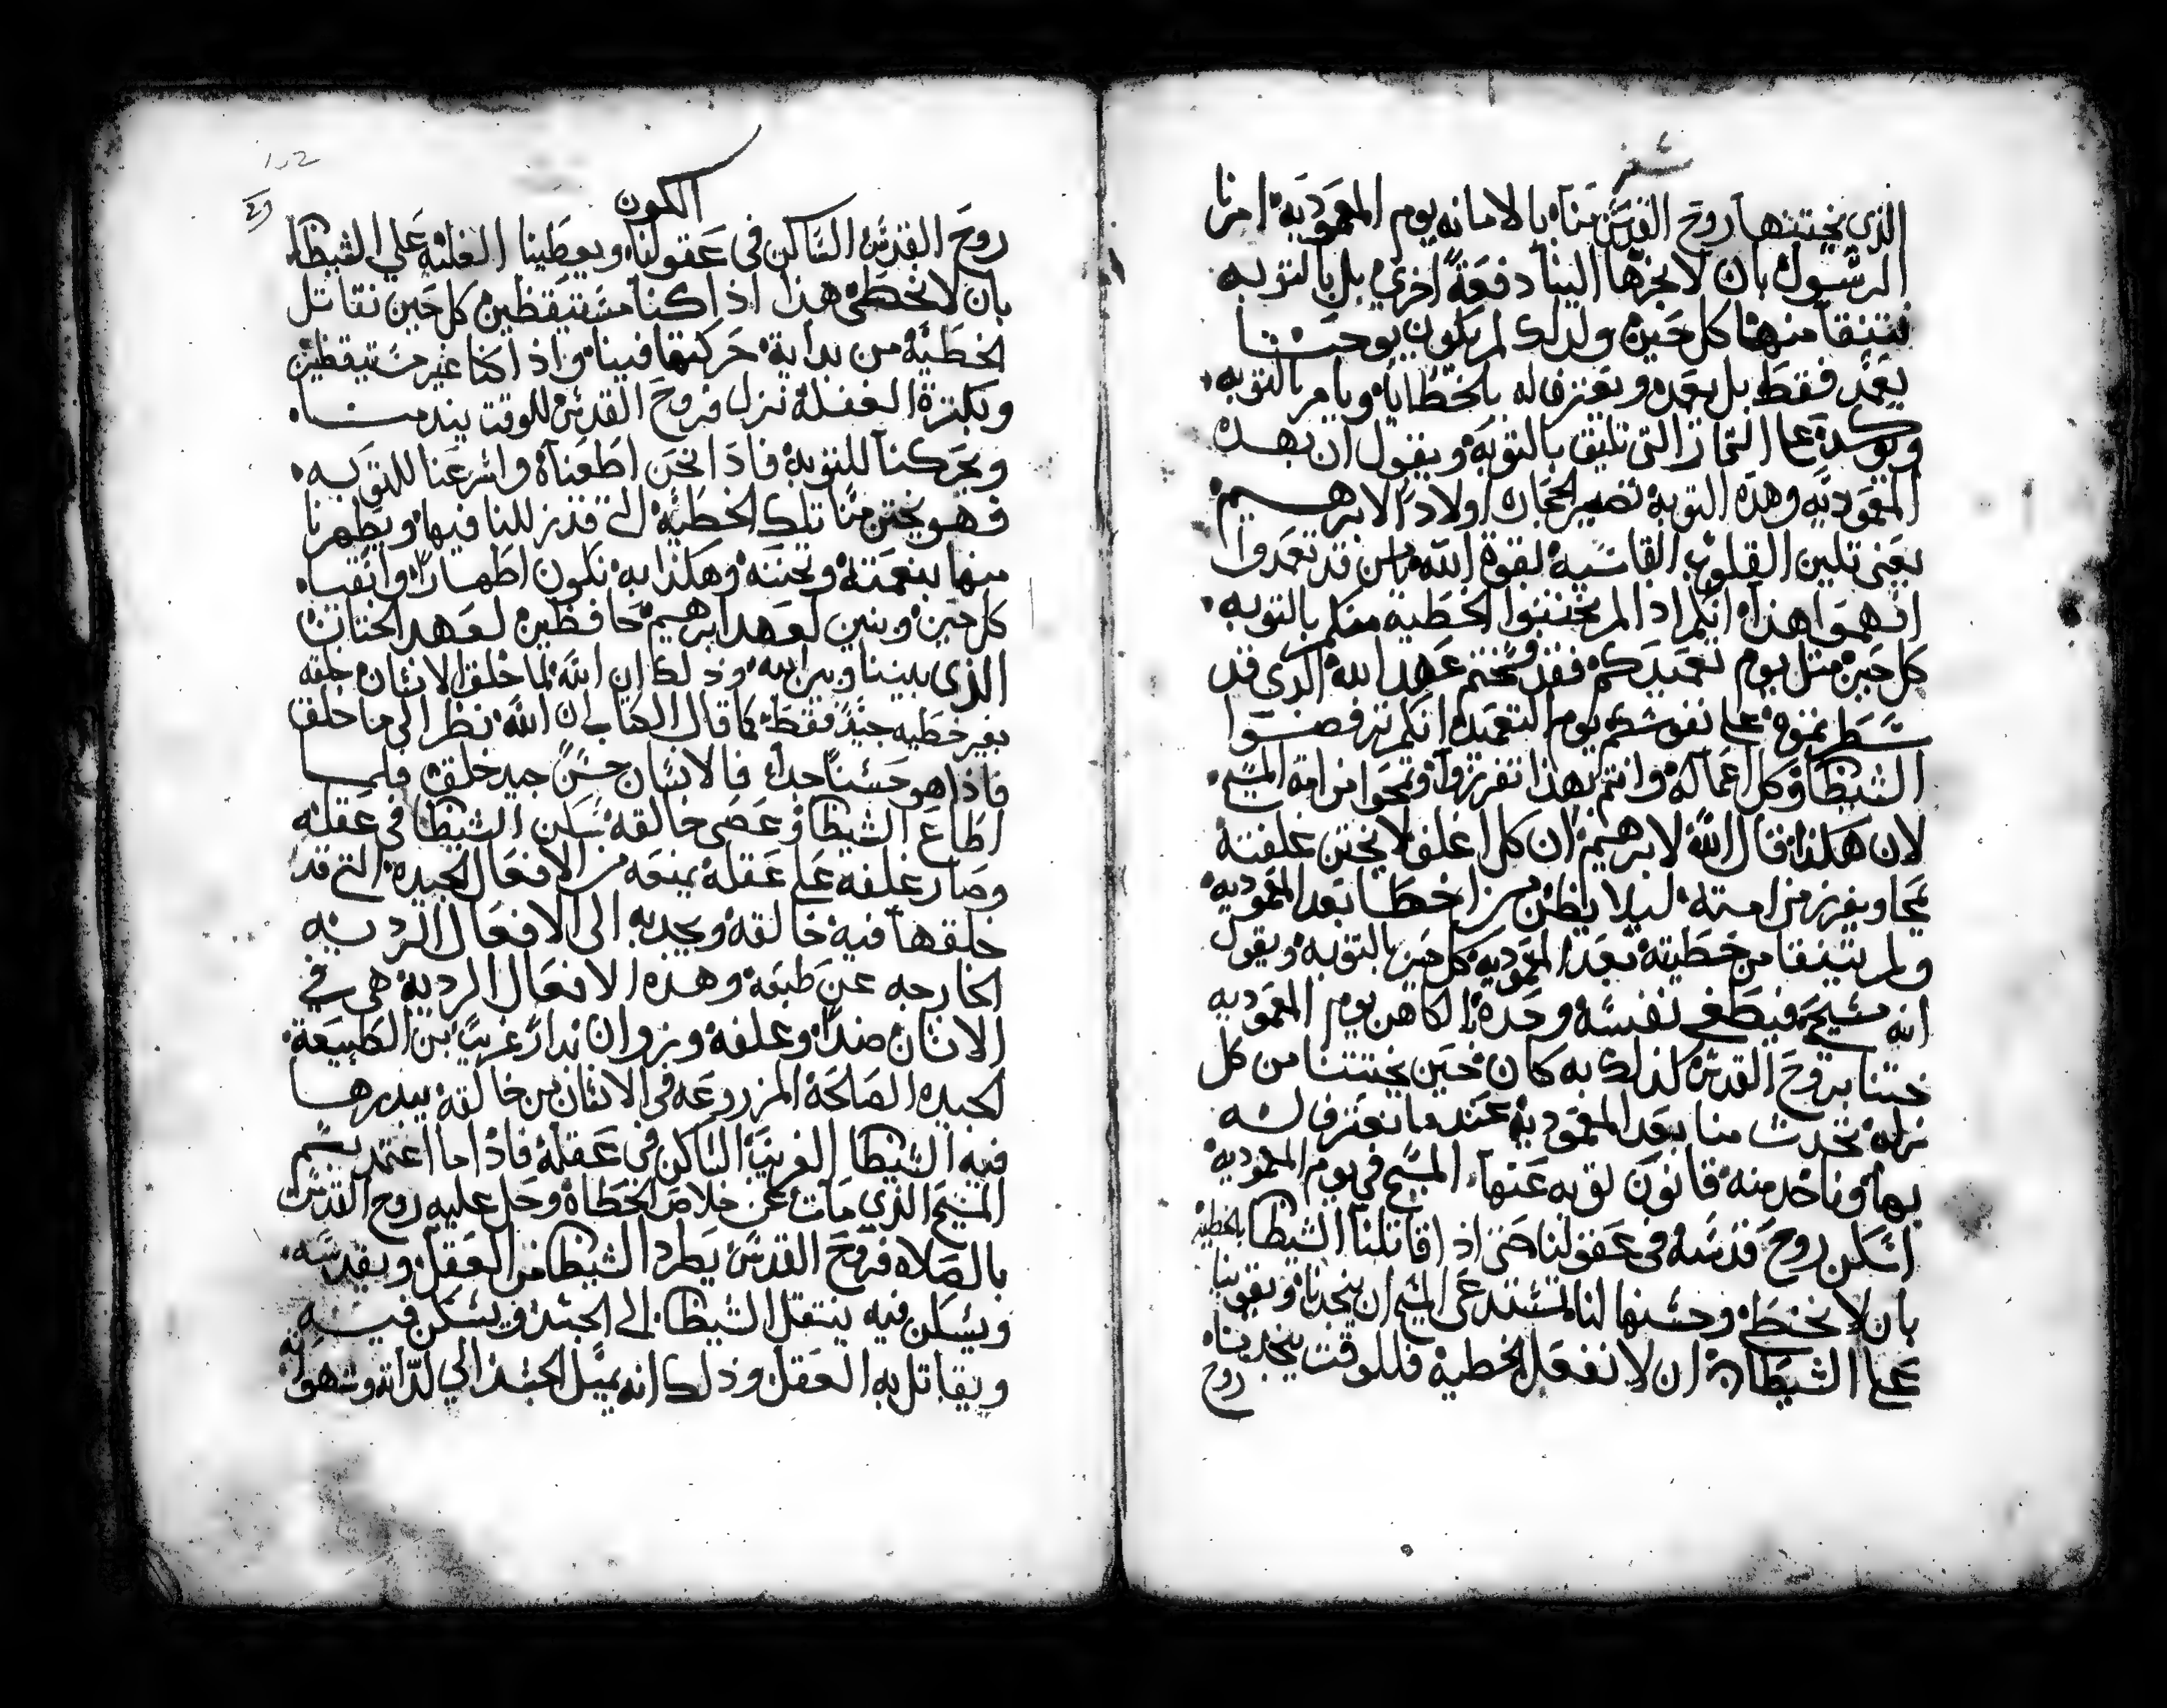 شفر
الذي يختتنها روح القدس منا بالامانه يوم المعموديه امرنا
الرسول بان لا نجرها الينا دفعة اخري بل بالتوبه
نتنقا منها كل حين ولذلك لم يكون يوحنا
يعمد فقط بل يعمد ويعترف له بالخطايا ويامر بالتوبه
ويوكد علي الثمار التي تليق بالتوبه ويقول ان بهذه
المعموديه وهذه التوبه تصير الحجاره اولاد لابرهيم
يعني تلين القلوب القاسيه لقوة الله يامن قد تعمدوا
افهموا هذا انكم اذا لم تختتنوا الخطيه منكم بالتوبه
كل حين مثل يوم تعميدكم فقد فسختم عهد الله الذي قد
شرطتموه علي نفوسكم يوم التعميد انكم ترفضوا
الشيطان وكل اعماله وانتم بهذا تفرزوا وتمحوا من امة المسيح
لان هكذا قال الله لابرهيم ان كل اغلف لا يختن غلفته
يمحا ويفرز من امته ليلا يظن من اخطا بعد المعموديه
ولم يتنقا من خطيته بعد المعموديه كل حين بالتوبه ويقول
انه مسيحي فيطغي نفسه وحده الكاهن يوم المعموديه
ختننا بروح القدس كذلك به كان حين يختتنا من كل
زله تحدث منا بعد المعموديه عندما نعترف له
بها وناخد منه قانون توبه عنها المسيح في يوم المعموديه
اسكن روح قدسه في عقولنا حتي اذا قاتلنا الشيطان بالخطيه
بان لا نخطي وحسنها لنا نستند علي المسيح ان ينجدنا ويقوينا
علي الشيطان ان لا نفعل الخطيه فللوقت ينجدنا
روح
الكون
روح القدس الساكن في عقولنا ويعطينا الغلبه علي الشيطان
بان لا نخطي هذا اذا كنا مستيقظين كل حين نقاتل
الخطيه من بداية حركتها فينا واذا كنا غير مستيقظين
وبكثرة الغفله نزل فروح القدس للوقت يندمنا
ويحركنا للتوبه فاذا نحن اطعناه واسرعنا للتوبه
فهو يختن منا تلك الخطيه التي قد زللنا فيها ويطهرنا
منها بنعمته وتحننه وهكذا به نكون اطهار وانقيا
كل حين وبنين لعهد ابرهيم حافظين لعهد الختان
الذي بيننا وبين الله وذلك ان الله لما خلق الانسان خلقه
بغير خطيه جيد فقط كما قال الكتاب ان الله نظر الي ما خلق
فاذا هو حسنا جدا فالانسان حسن جيد خلق فلما
اطاع الشيطان وعصي خالقه سكن الشيطان في عقله
وصار غلفه علي عقله يمنعه من الافعال الجيده التي قد
خلقها فيه خالقه ويجدبه الي الافعال الرديه
الخارجه عن طبعه وهذه الافعال الرديه هي في
الانسان ضدا وغلفه وزوان بدار غريب بين الطبيعة
الجيده الصالحة المزروعه في الانسان من خالقه يبدرها
فيه الشيطان الغريب الساكن في عقله فاذا ما اعتمد بسم
المسيح الذي مات عن خلاص الخطاة وحل عليه روح القدس
بالصلاه فروح القدس يطرد الشيطان من العقل ويقدسه
ويسكن فيه ينتقل الشيطان الي الجسد ويسكن فيه
ويقاتل به العقل وذلك انه يميل الجسد الي لذاته وشهواته